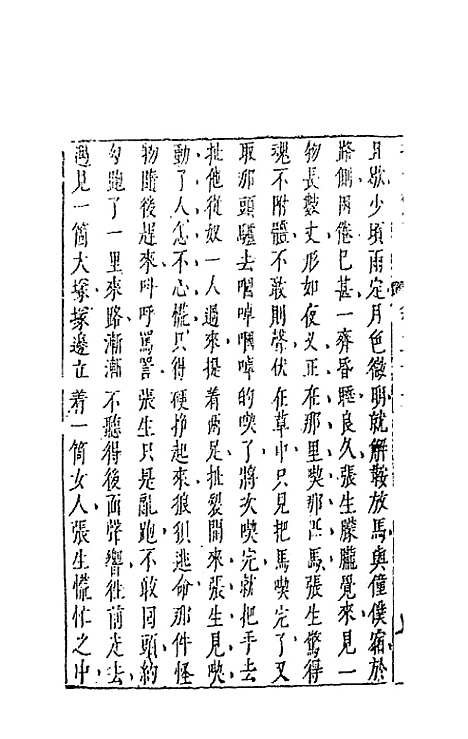 且歇少頃雨定月色微明就解鞍放馬與僮僕宿於
路側困倦已甚一齊昏睡良久張生朦朧覺來見一
物長數丈形如夜叉正在那里喫那匹馬張生驚得
魂不附體不敢則聲伏在草中只見把馬喫完了又
取那頭驢去啯啅啯啅的喫了將次喫完就把手去
扯他從奴一人過來提着兩足扯裂開來張生見喫
動了人怎不心慌只得硬掙起來狼狽逃命那件怪
物隨後趕來呌呼罵詈張生只是亂跑不敢回頭約
勾跑了一里來路漸漸不聽得後面聲響往前走去
遇見一箇大塚塚邊立着一箇女人張生慌忙之中